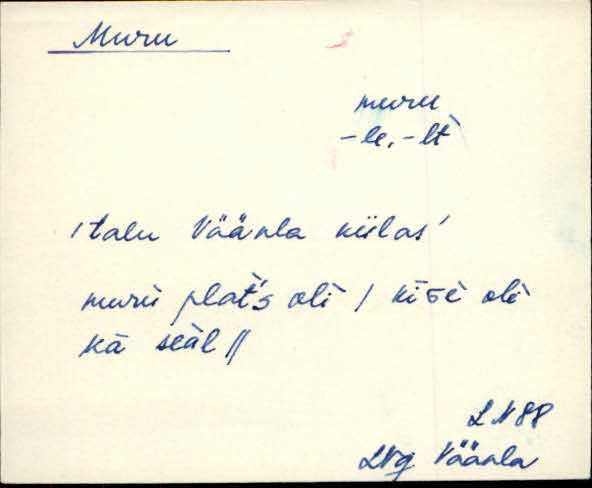 Muru
muru
-le, -lt
'talu Vääna külas'
muru plat's oli / kiĢe oli
kà seäl //
LN88
LNg Vääna